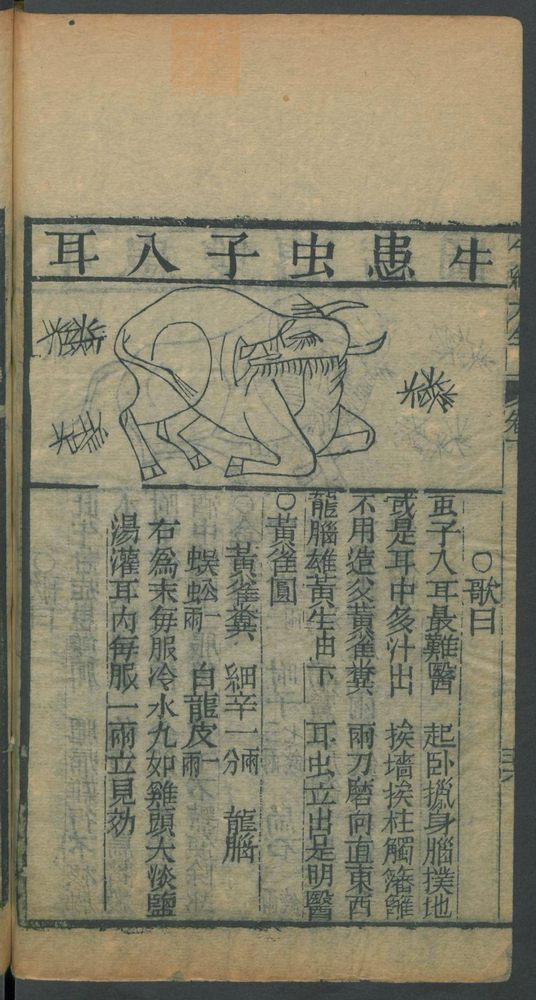 牛患虫子入耳
○歌曰
虫子入耳最難醫 起卧攧身腦撲地
或是耳中多汁出 挨墻挨柱觸籓籬
不用造父黃雀糞 兩刀磨向直東西
龍腦雄黃生由下 耳虫立出是明醫
○黃雀圓
黃雀糞 細辛一兩一分 龍腦
蜈蚣一兩 白龍皮一兩
右為末每服冷水丸如雞頭大淡鹽
湯灌耳內每服一兩立見効